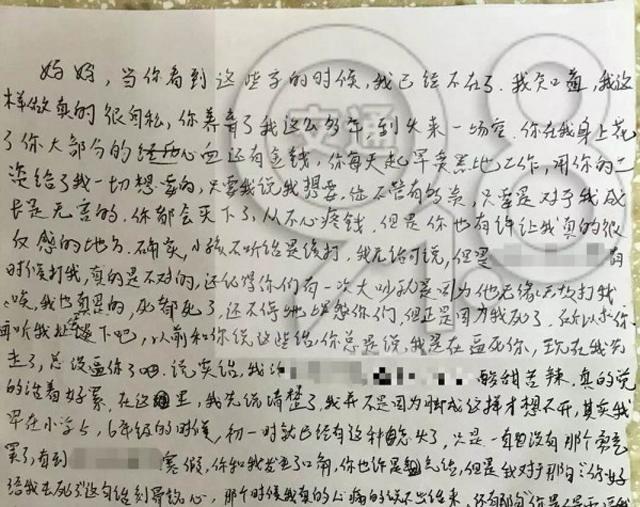 妈妈，当你看到这些字的时候，我已经不在了。我知道，我这
样做真的很自私，你养育了我这么多年，到头来一场空。你在我身上花
了你大部分的心血还有金钱，你每天起早贪黑地工作，用你的工
资给了我一切想要的，只要我说我想要，你不管有多贵，只要是对于我成
长是无害的，你都会买下了，从不心疼钱。但是你也有许让我真的很
反感的地方。确实，小孩不听话是该打，我无话可说，但是 有
时候打我，真的是不对的，还记得你们有一次大吵就是因为他无缘无故打我
唉，我也真是的，死都死了，还不停地 你们，但正是因为我死了，所以求你
再听我 下吧，以前和你说这些话，你总是说我是在逼死你，现在我先
走了，总没逼你了吧。说实话，我 酸甜苦辣，真的觉
的活着好累。在这里，我先说清楚了，我并不是因为 成这样才想不开，其实我
早在小学5，6年级的时候，初一时就已经有这种念头了，只是一直没有那个勇气
罢了，有到 寒假，你和我发生了口角，你也许是气话，但是我对于那句“你好
给我去死了”这句话刻骨铭心，那个时候我真的心痛的说不出话来，还有那句